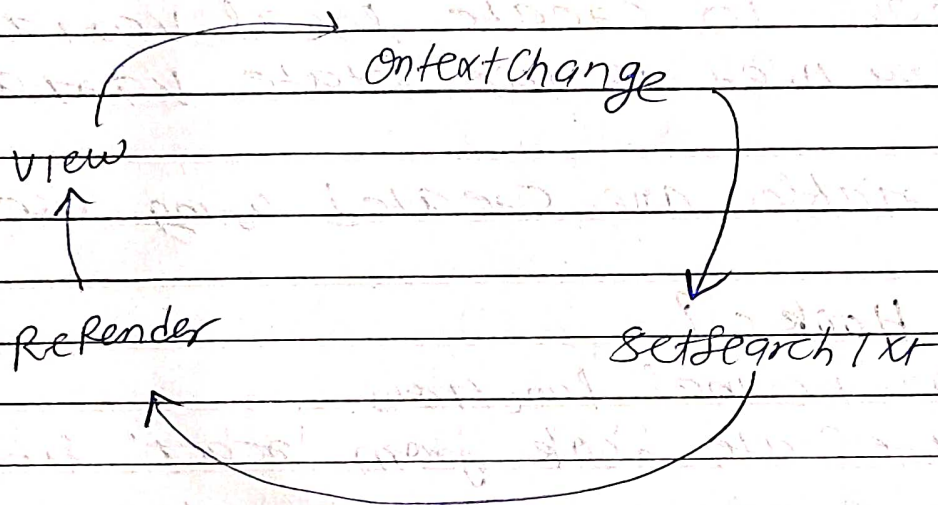 OntextChange
View
ReRender
SetSearchTxt